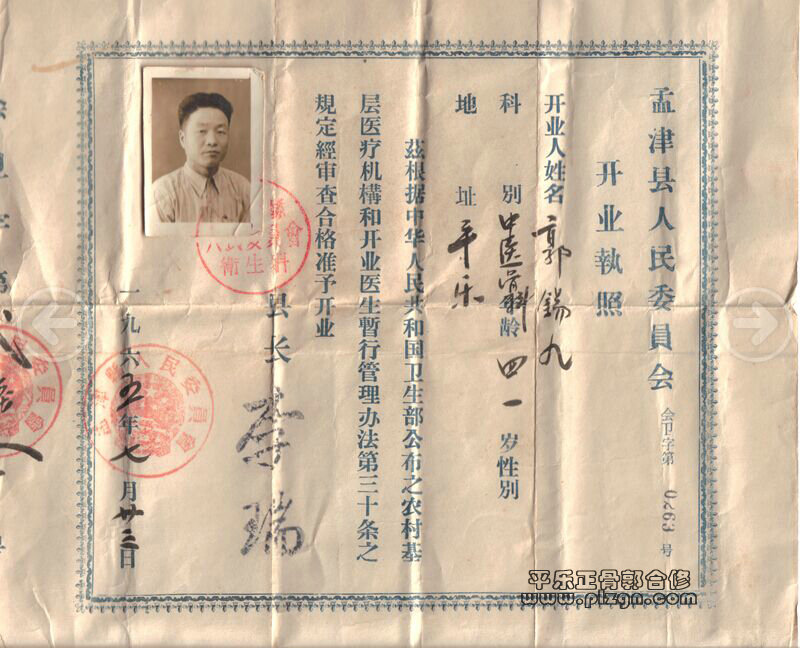 孟津县人民委員会
开业執照
会卫字第0299号
开业人姓名 郭錫九
科别 中医骨科 龄 四一 岁 性别
地址 平乐
茲根据中华人民共和国卫生部公布之农村基
层医疗机構和开业医生暫行管理办法第三十条之
規定經审查合格准予开业
县长 李瑞
一九六五年七月廿三日
衛生科
津縣人民委員會
委員會
平乐正骨郭合修
www.plzgn.com